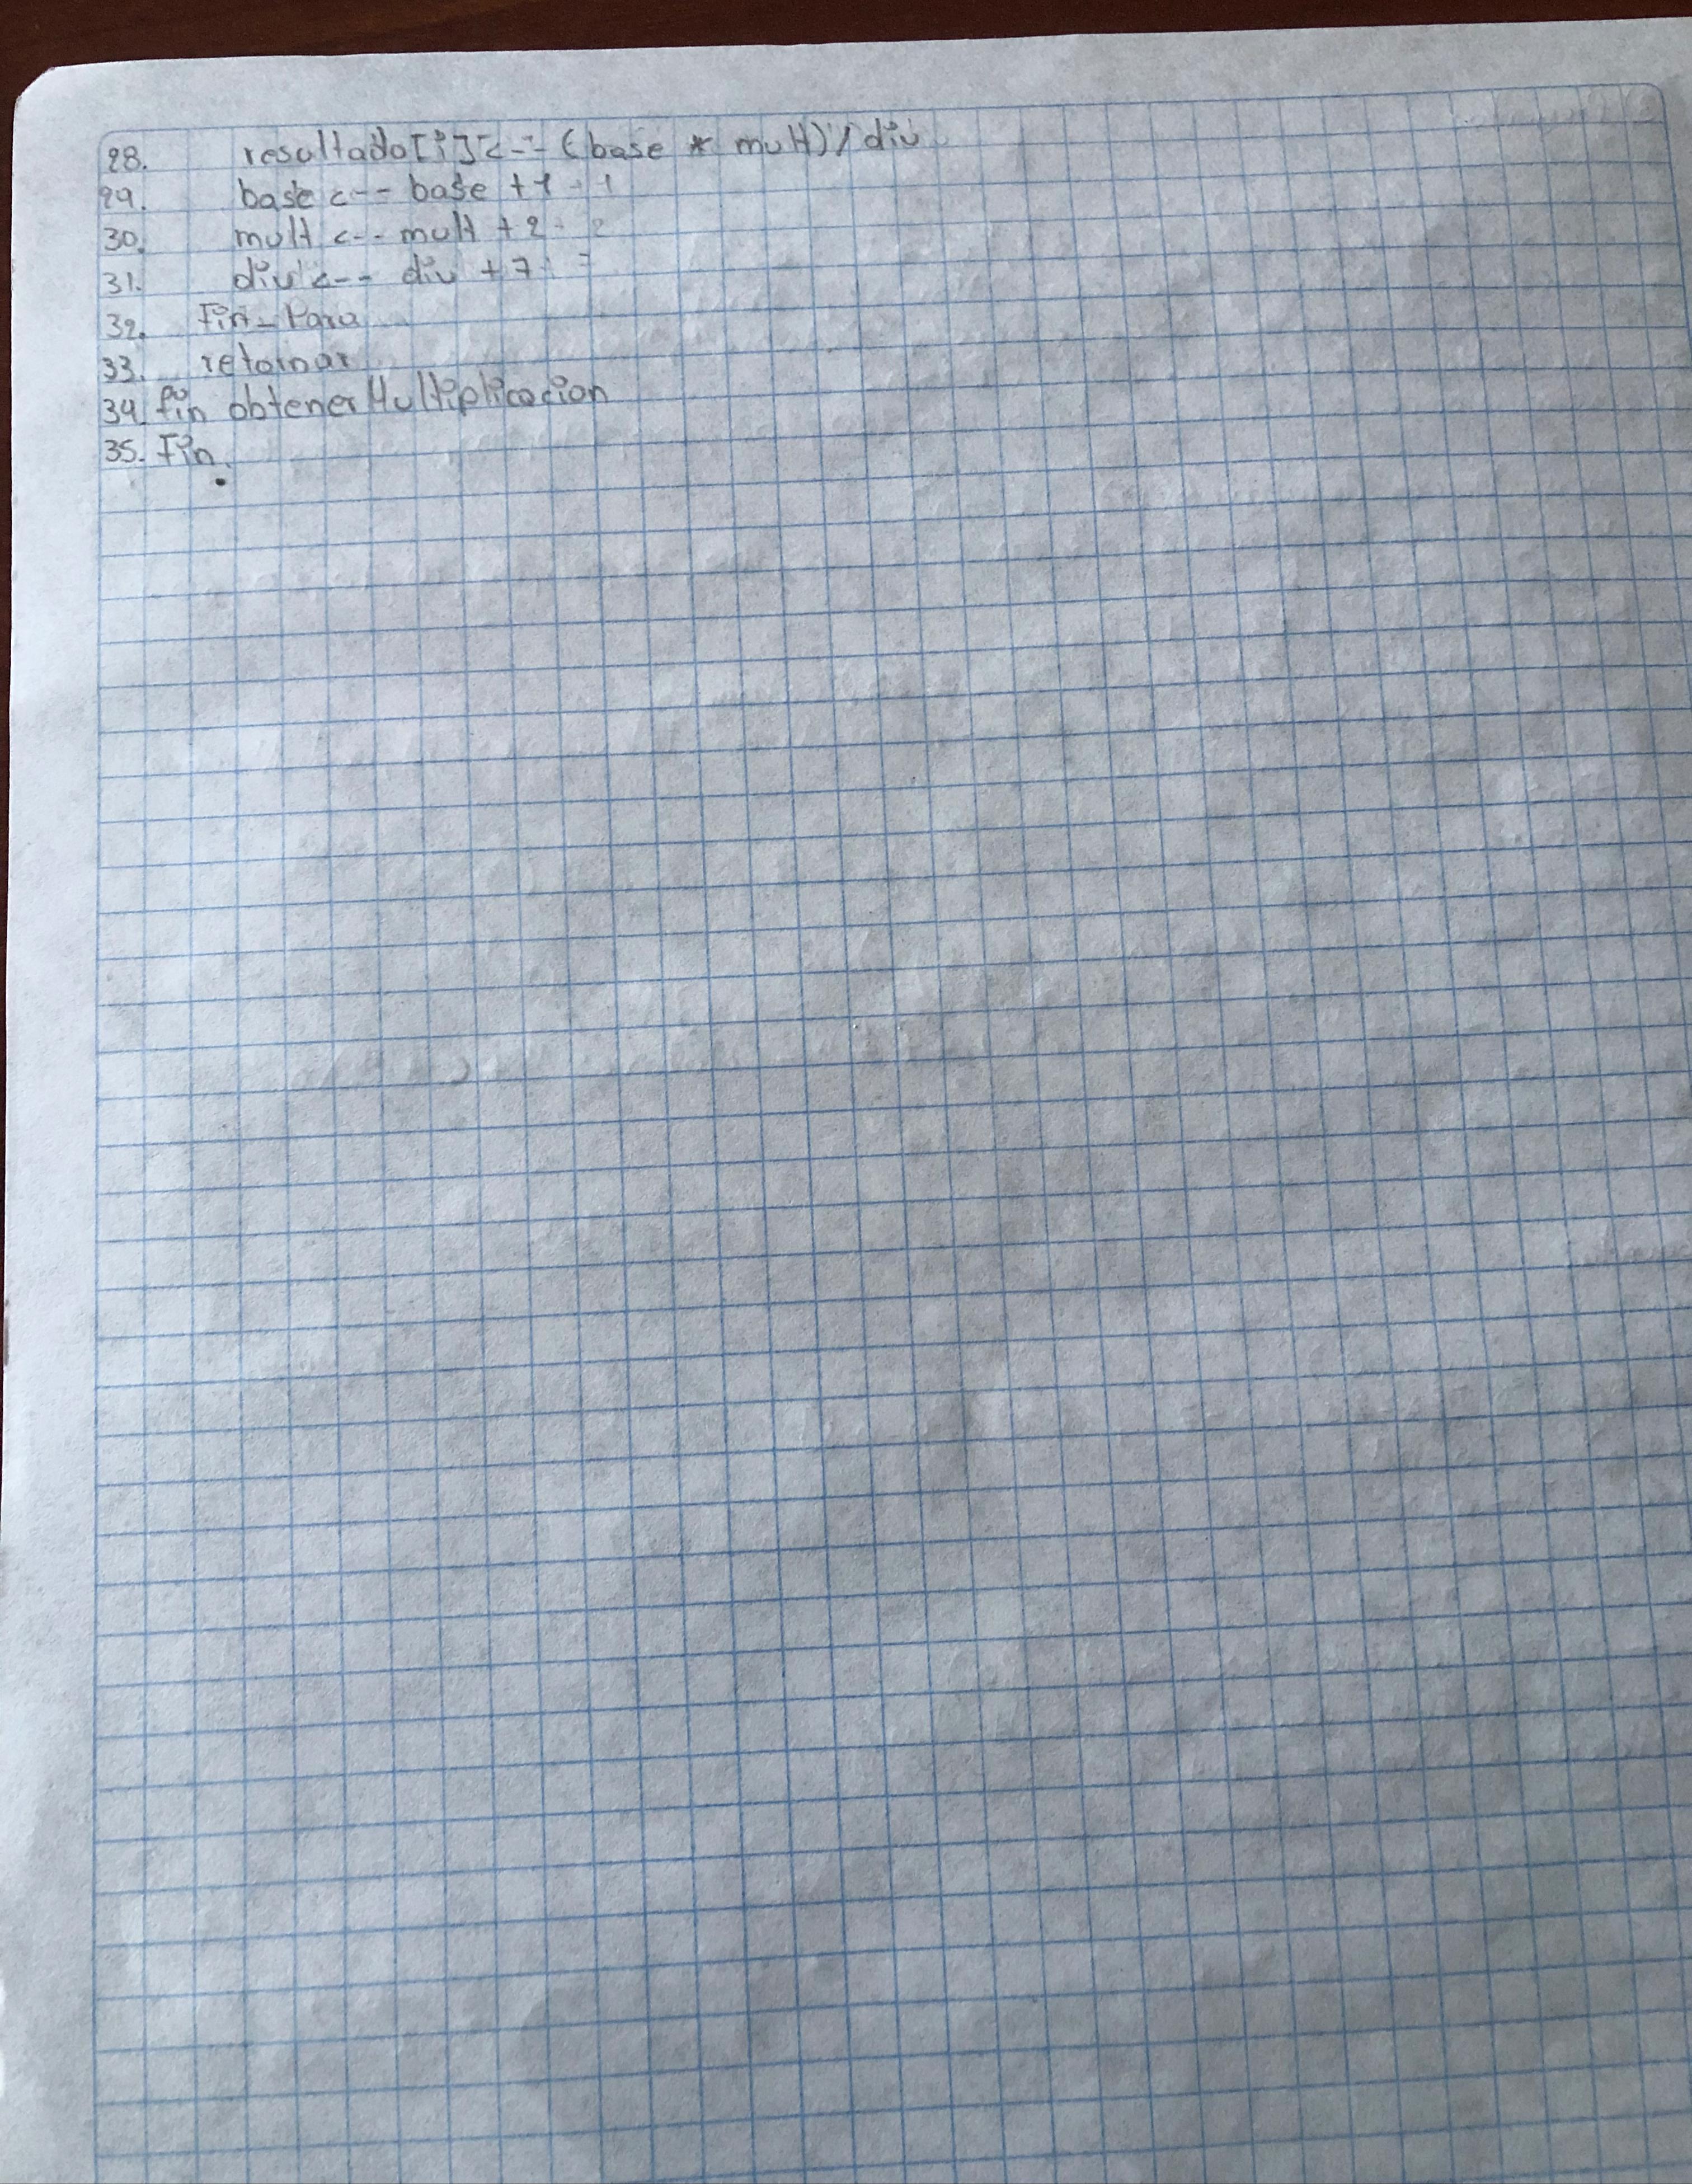 28. resultado[i] <-- (base * mult) / div
29. base <-- base + 1
30. mult <-- mult + 2
31. div <-- div + 7
32. Fin-Para
33. retornar
34. fin obtenerMultiplicacion
35. Fin.